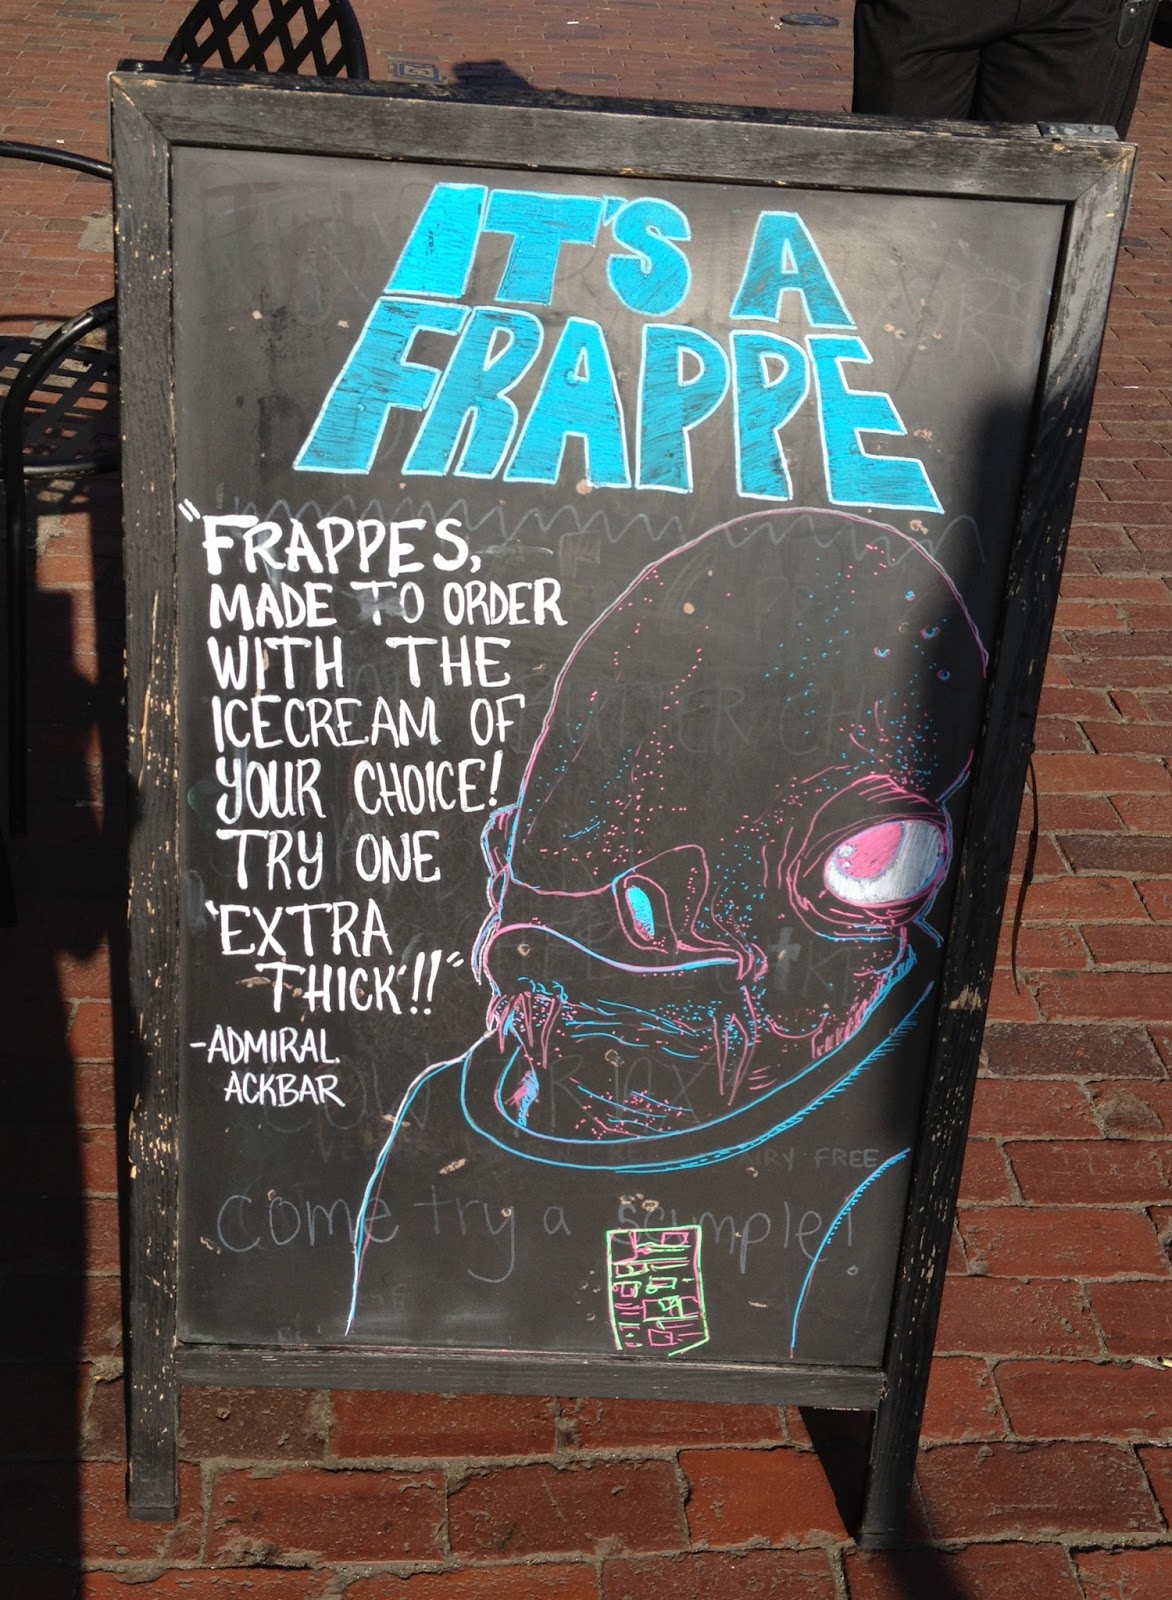 IT'S A
FRAPPE
"FRAPPES,
MADE TO ORDER
WITH THE
ICECREAM OF
YOUR CHOICE!
TRY ONE
'EXTRA
THICK'!!"
-ADMIRAL
ACKBAR
DAIRY FREE
Come try a sample!